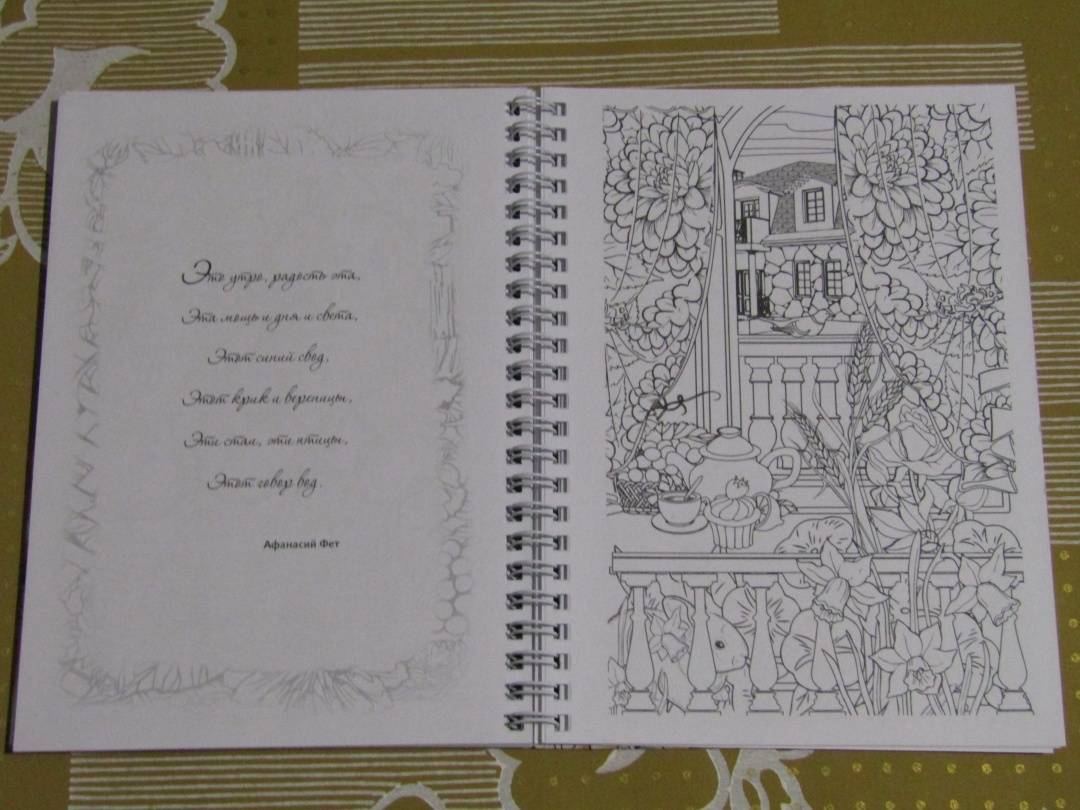 Это утро, радость эта,
Эта мощь и дня и света,
Этот синий свод,
Этот крик и вереницы,
Эти стаи, эти птицы,
Этот говор вод.
Афанасий Фет